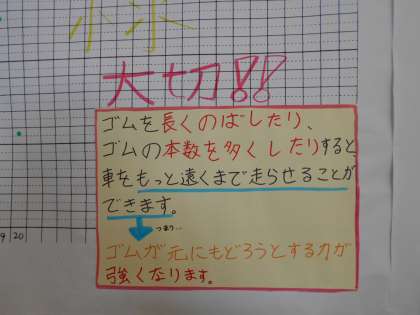 大切!!
ゴムを長くのばしたり、
ゴムの本数を多くしたりすると、
車をもっと遠くまで走らせることが
できます。
つまり…
ゴムが元にもどろうとする力が
強くなります。
9 20